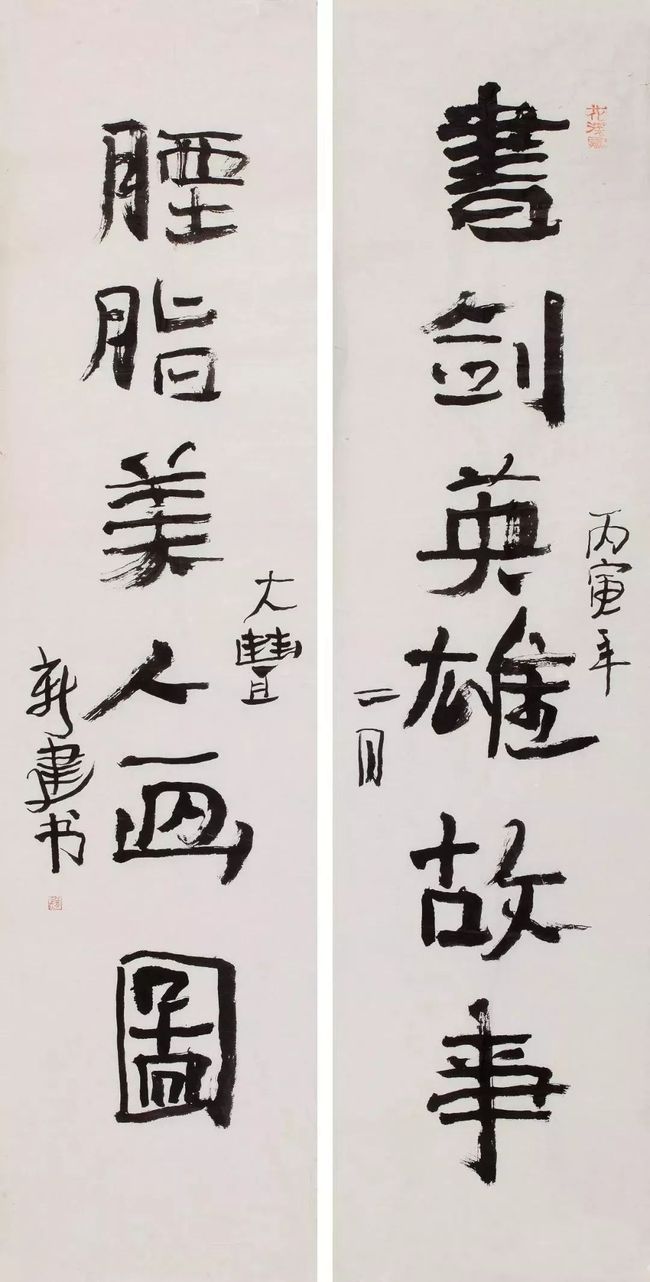 書剑英雄故事
丙寅年
二月
脂美人画圖
大豐
新建书